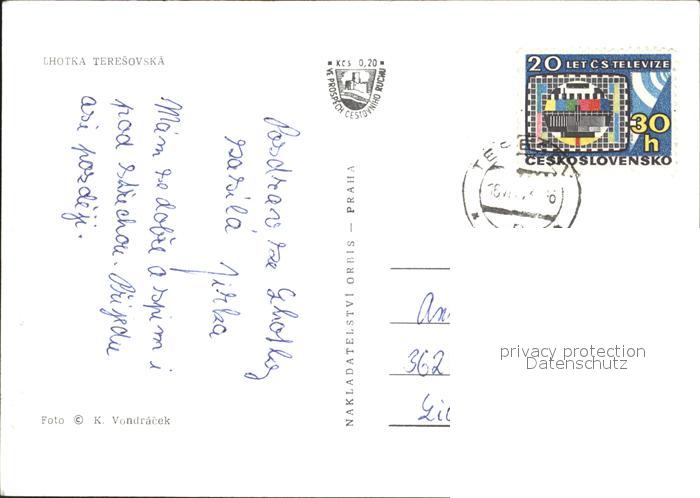 LHOTKA TEREŠOVSKÁ
Kčs 0,20
VE PROSPĚCH CESTOVNÍHO RUCHU
20 LET ČS TELEVIZE
30
h
ČESKOSLOVENSKO
Pozdrav ze Lhotky
zasílá Jirka
Mám se dobře a spím i
pod střechou. Přijedu
asi později.
NAKLADATELSTVÍ ORBIS — PRAHA
362
privacy protection
Datenschutz
Foto © K. Vondráček